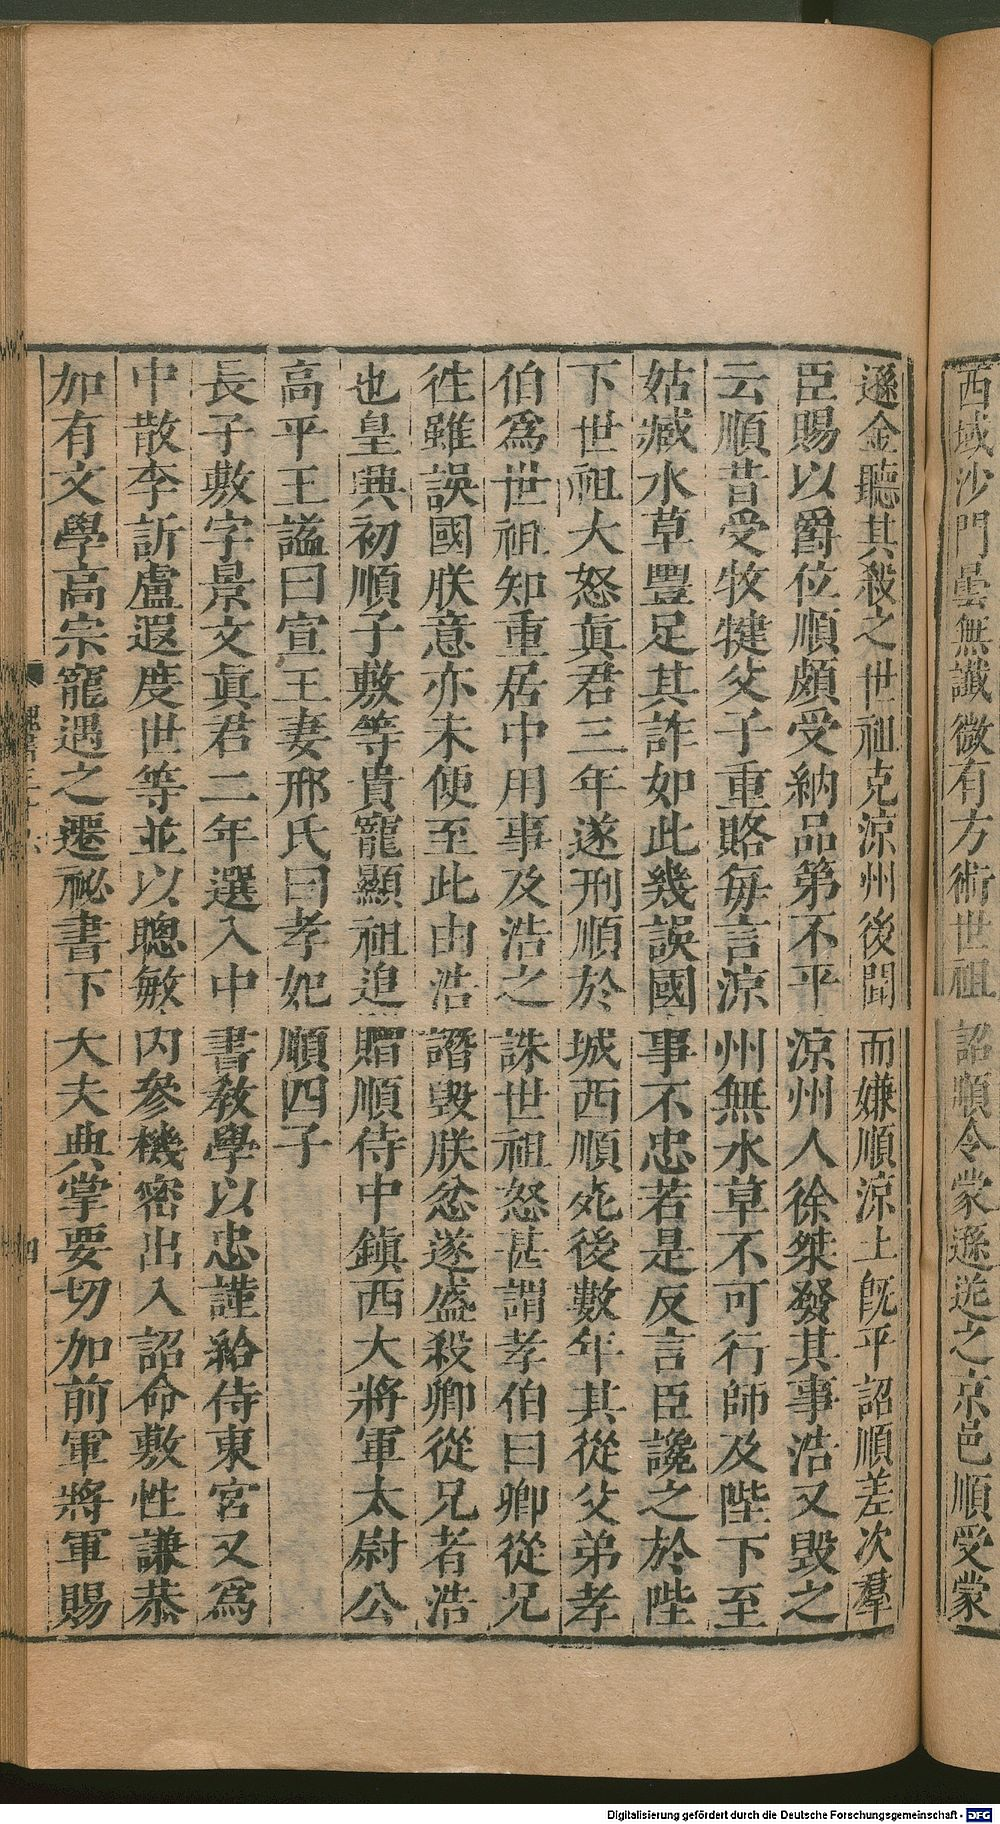 西域沙門曇無讖微有方術世祖詔順令蒙遜送之京邑順受蒙
遜金聽其殺之世祖克涼州後聞而嫌順涼土既平詔順差次羣
臣賜以爵位順頗受納品第不平涼州人徐桀發其事浩又毀之
云順昔受牧犍父子重賂每言涼州無水草不可行師及陛下至
姑臧水草豐足其詐如此幾誤國事不忠若是反言臣讒之於陛
下世祖大怒眞君三年遂刑順於城西順死後數年其從父弟孝
伯爲世祖知重居中用事及浩之誅世祖怒甚謂孝伯曰卿從兄
徃雖誤國朕意亦未便至此由浩譖毀朕忿遂盛殺卿從兄者浩
也皇興初順子敷等貴寵顯祖追贈順侍中鎭西大將軍太尉公
高平王諡曰宣王妻邢氏曰孝妃順四子
長子敷字景文眞君二年選入中書教學以忠謹給侍東宮又爲
中散李訢盧遐度世等並以聰敏內參機密出入詔命敷性謙恭
加有文學高宗寵遇之遷祕書下大夫典掌要切加前軍將軍賜
四
Digitalisierung gefördert durch die Deutsche Forschungsgemeinschaft - DFG